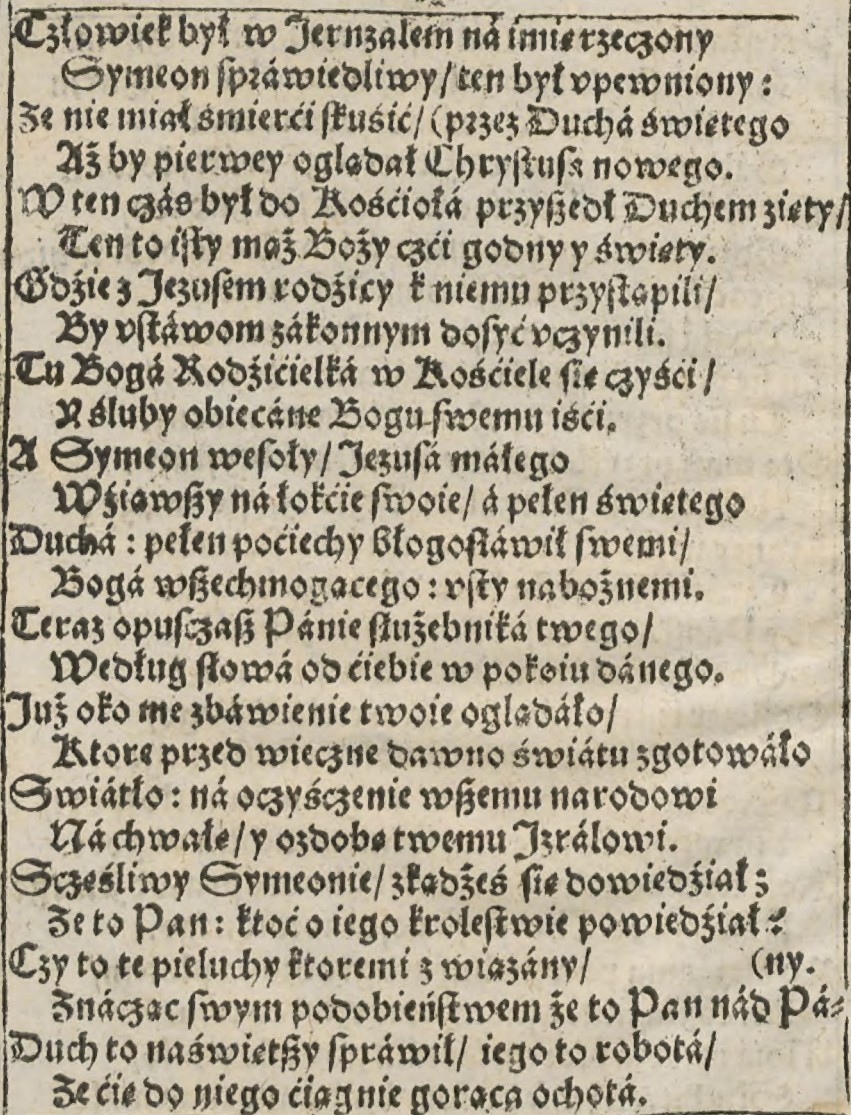 Cżłowiek był w Jeruzalem ná imię rzeczony
Symeon spráwiedliwy/ ten był vpewniony:
Że nie miał śmierći skuśić/ (przez Duchá świętego
Aż by pierwey oglądał Chrystusá nowego.
W ten czás był do Kośćiołá przyszedł Duchem zięty/
Ten to isty mąż Boży czći godny y święty.
Gdźie z Jezusem rodźicy k niemu przystąpili/
By vstáwom zákonnym dosyć vczynili.
Tu Bogá Rodźićielká w Kośćiele się czyśći/
Y śluby obiecáne Bogu swemu iśći.
A Symeon wesoły/ Jezusá máłego
Wźiąwszy ná łokćie swoie/ á pełen świętego
Duchá: pełen poćiechy błogosłáwił swemi/
Bogá wszechmogącego: vsty nabożnemi.
Teraz opusczasz Pánie służebniká twego/
Według słowá od ćiebie w pokoiu dánego.
Już oko me zbáwienie twoie oglądáło/
Ktore przed wieczne dawno świátu zgotowáło
Swiátło: ná oczyśczenie wszemu narodowi
Ná chwałę/ y ozdobę twemu Jzrálowi.
Sczęśliwy Symeonie/ zkądżeś się dowiedźiał;
Że to Pan: ktoć o iego krolestwie powiedźiał?
Czy to te pieluchy ktoremi z wiązány/
Znácząc swym podobieństwem że to Pan nád Pá-(ny.
Duch to naświętszy spráwił/ iego to robotá/
Że ćię do niego ćiągnie gorąca ochotá.